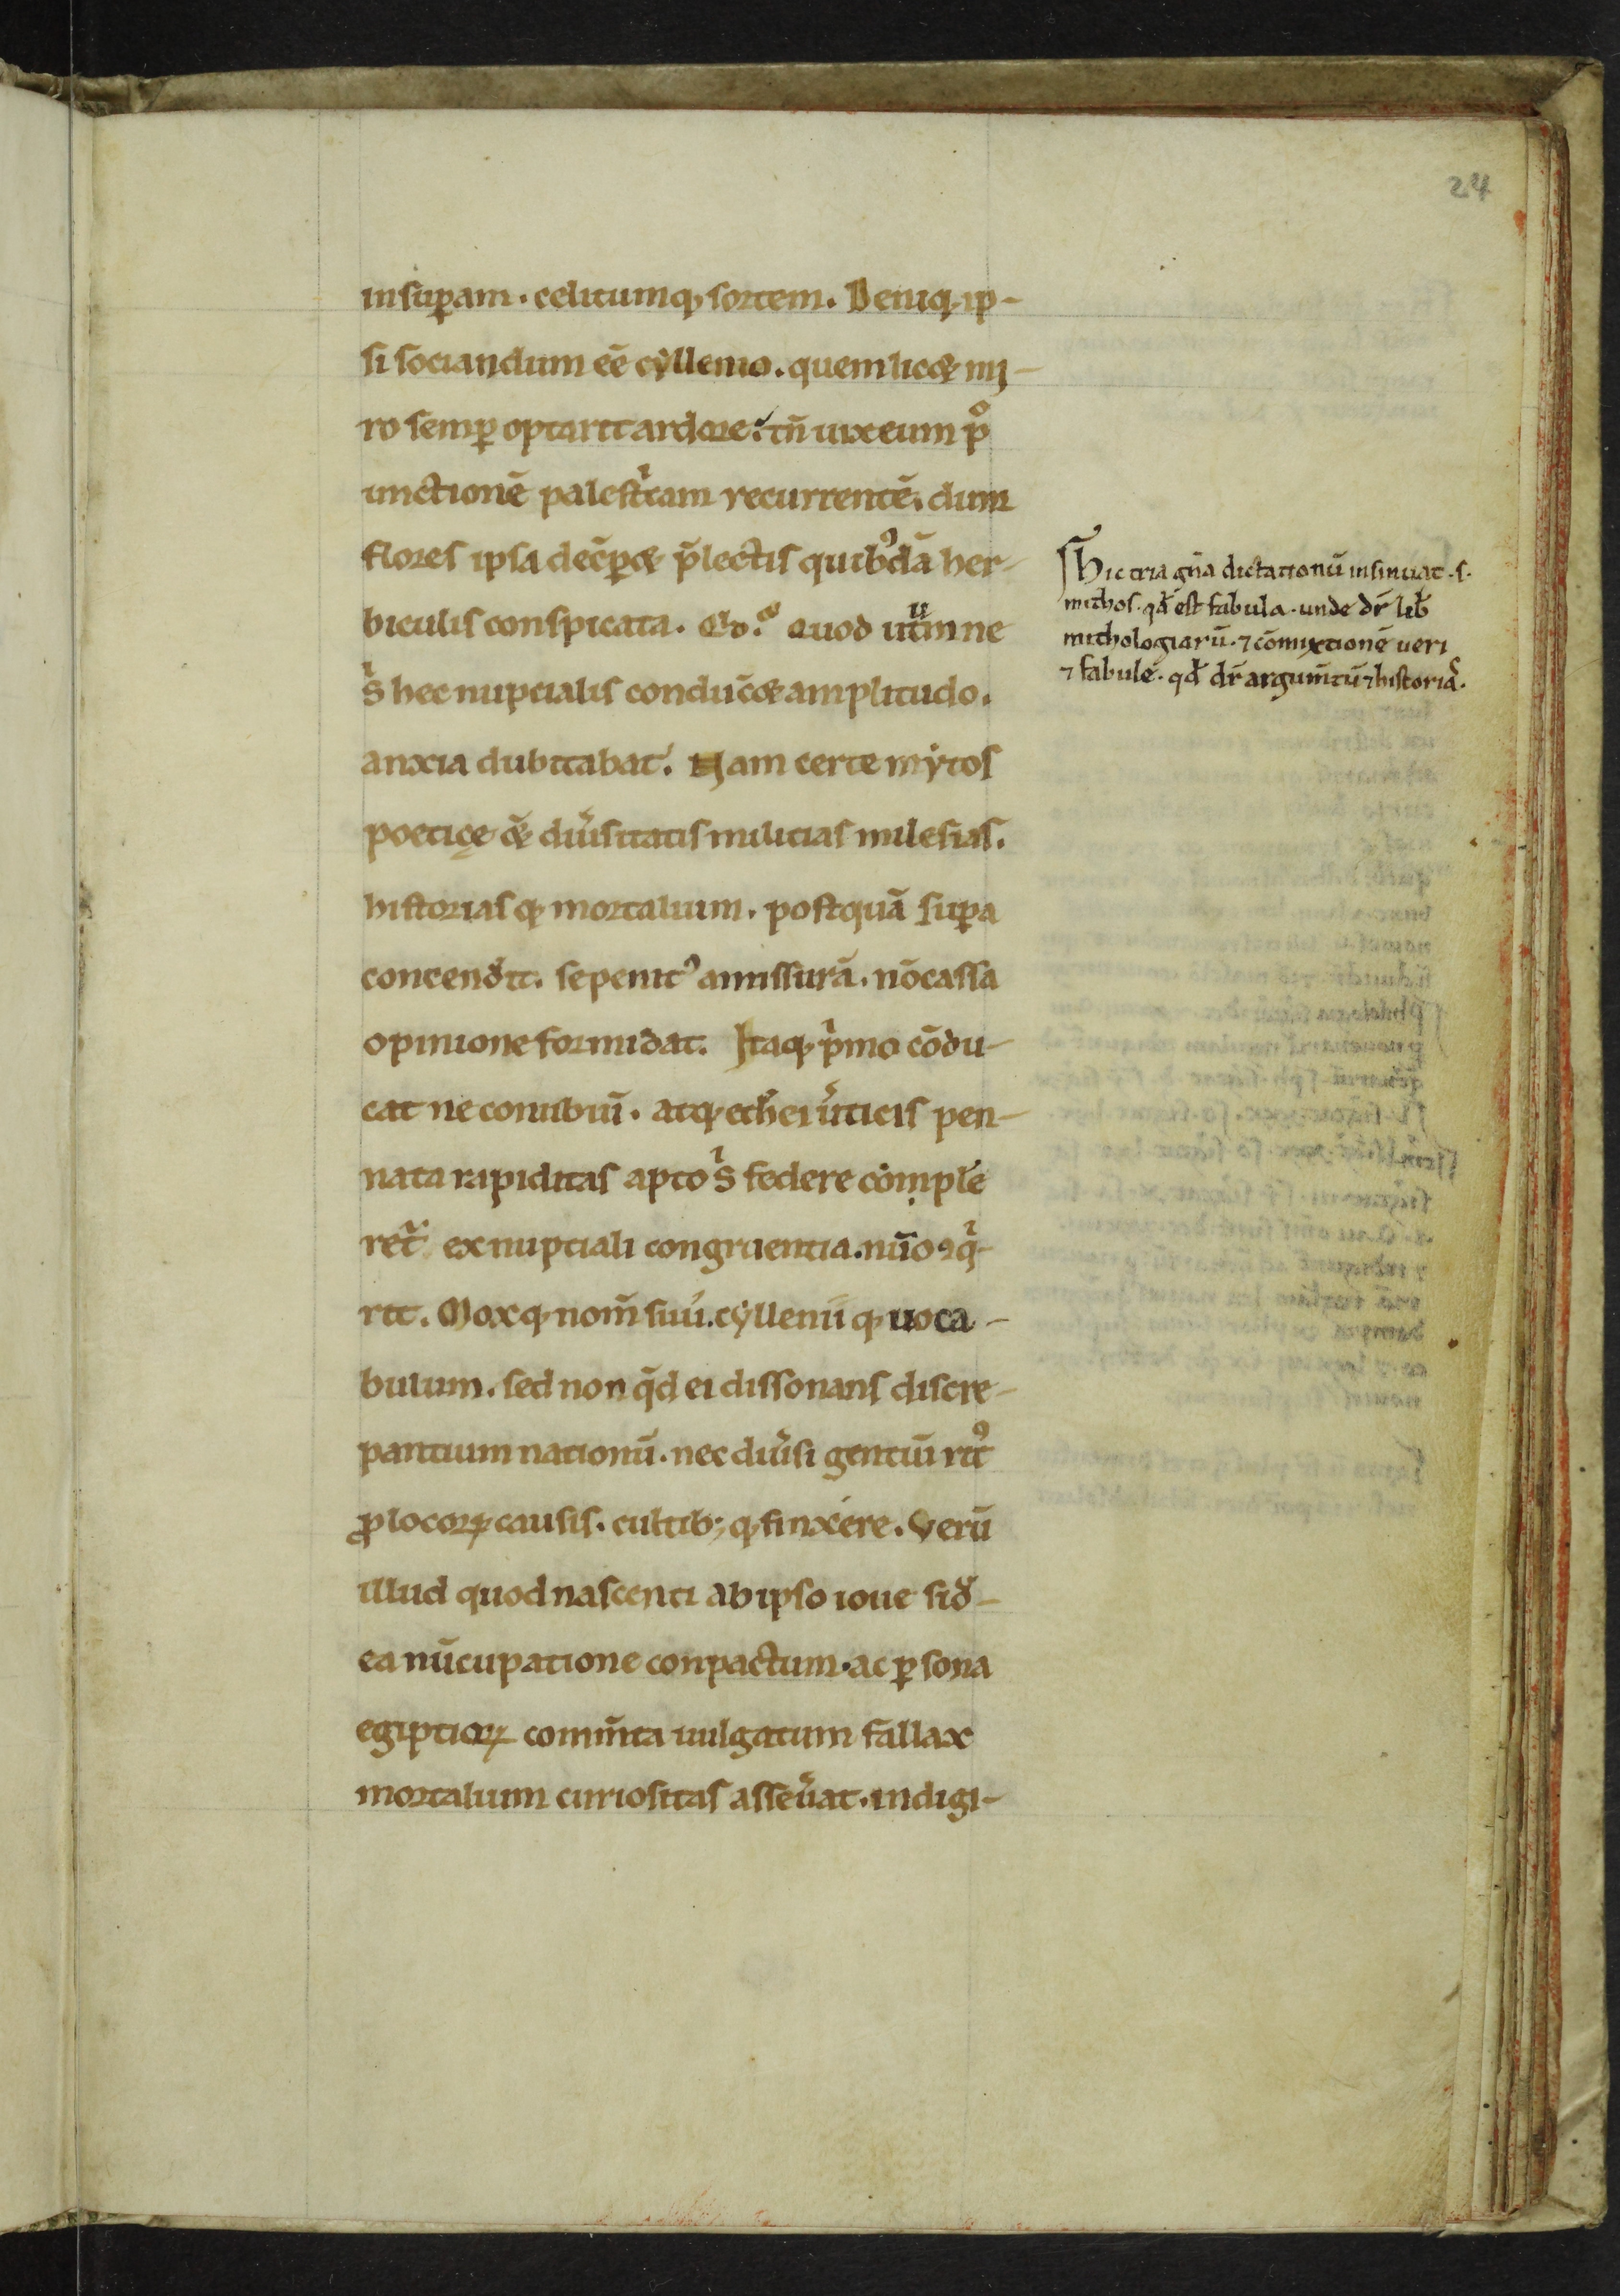 24
insuꝑam. celitumqꝫ sortem. Deniqꝫ ip-
si sociandum eē cyllenio. quem licꝫ mi-
ro semꝑ optarit ardore. tn̄ uix eum pͦ
unctionē palestͥcam recurrentē. dum
flores ipsa decꝑꝫ p̄lectis quibꝰdā her-
biculis conspicata. Qͦ. Quod utͫm ne
sͥ hec nuptialis conducꝫ amplitudo.
anxia dubitabat. Nam certe mẏtos
poeticę & diuͥsitatis militias milesias.
historiasqꝫ mortalium. postquā suꝑa
concend̾it. se penitꝰ amissurā. nō cassa
opinione formidat. Itaqꝫ pͥmo cōdu-
cat ne conubiū. atqꝫ ethei u̾ticis pen-
nata rapiditas apto sͥ federe comple
ret᷑ ex nuptiali congruentia. nūo ꝯqͥ-
rit. Moxqꝫ nom̄ suū. cẏllenii qꝫ uoca-
bulum. sed non qd̄ ei dissonans discre-
pantium nationū. nec diu̾si gentiū ritꝰ
ꝓ locoꝝ causis. cultibꝫ qꝫ finxere. Verū
illud quod nascenti ab ipso ioue sid̾-
ea nūcupatione conpactum. ac ꝑ sona
egiptioꝝ comm̄ta uulgatum fallax
mortalium curiositas asseu̾at. indigi-
Hic tria gn̄a dictationū insinuat. s.
mithos. qd̄ est fabula. unde dr̄ lib̄
mithologiarū. ⁊ cōmixtionē ueri
⁊ fabulę. qd̄ dr̄ argum̄tū ⁊ historiā.